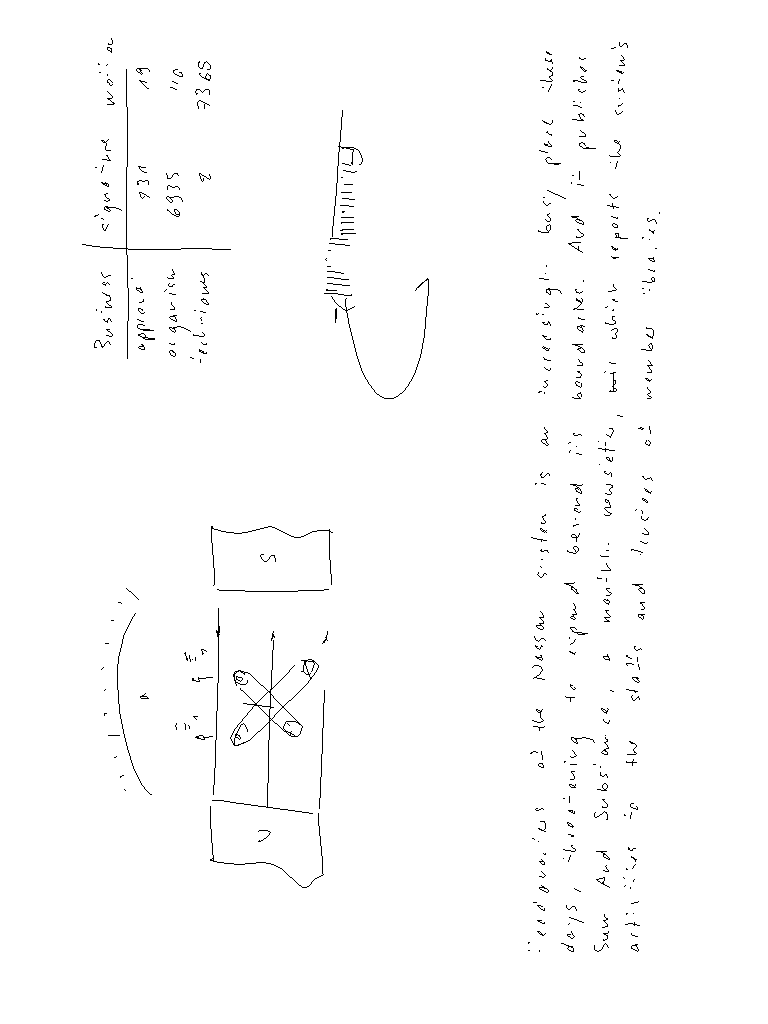 Business signature
approval 931 19
organism 6935 110
techniques 2 7365
N
S
of the Nassau system is an increasingly busy place these
days, threatening to expand beyond its boundaries. And it publishes
Sum And Substance, a monthly newsletter, which reports the system's
activities to the staffs and trustees of member libraries.